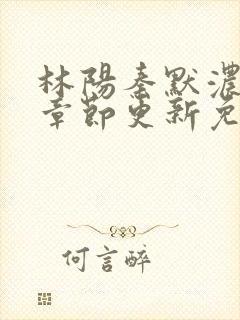 林陽秦默濃
章節更新免
何言醉